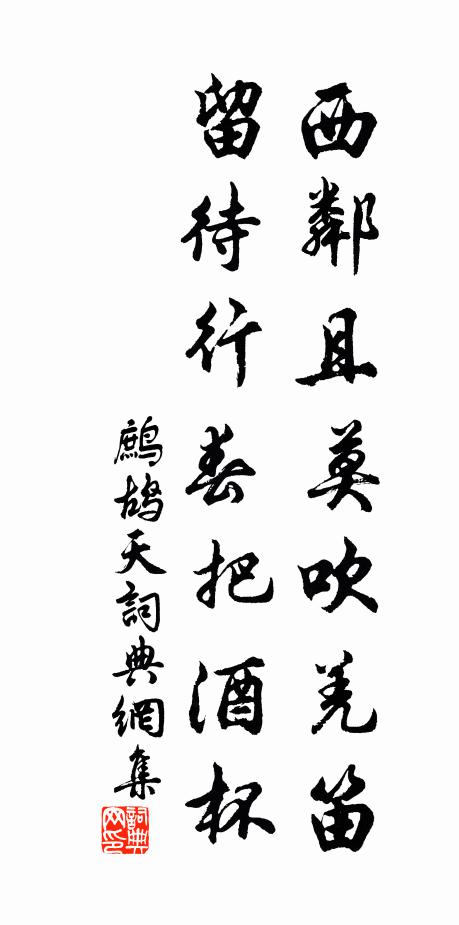 西鄰且莫吹羌笛
留待行春把酒杯
鷓鴣天詞典網集
詞典網印